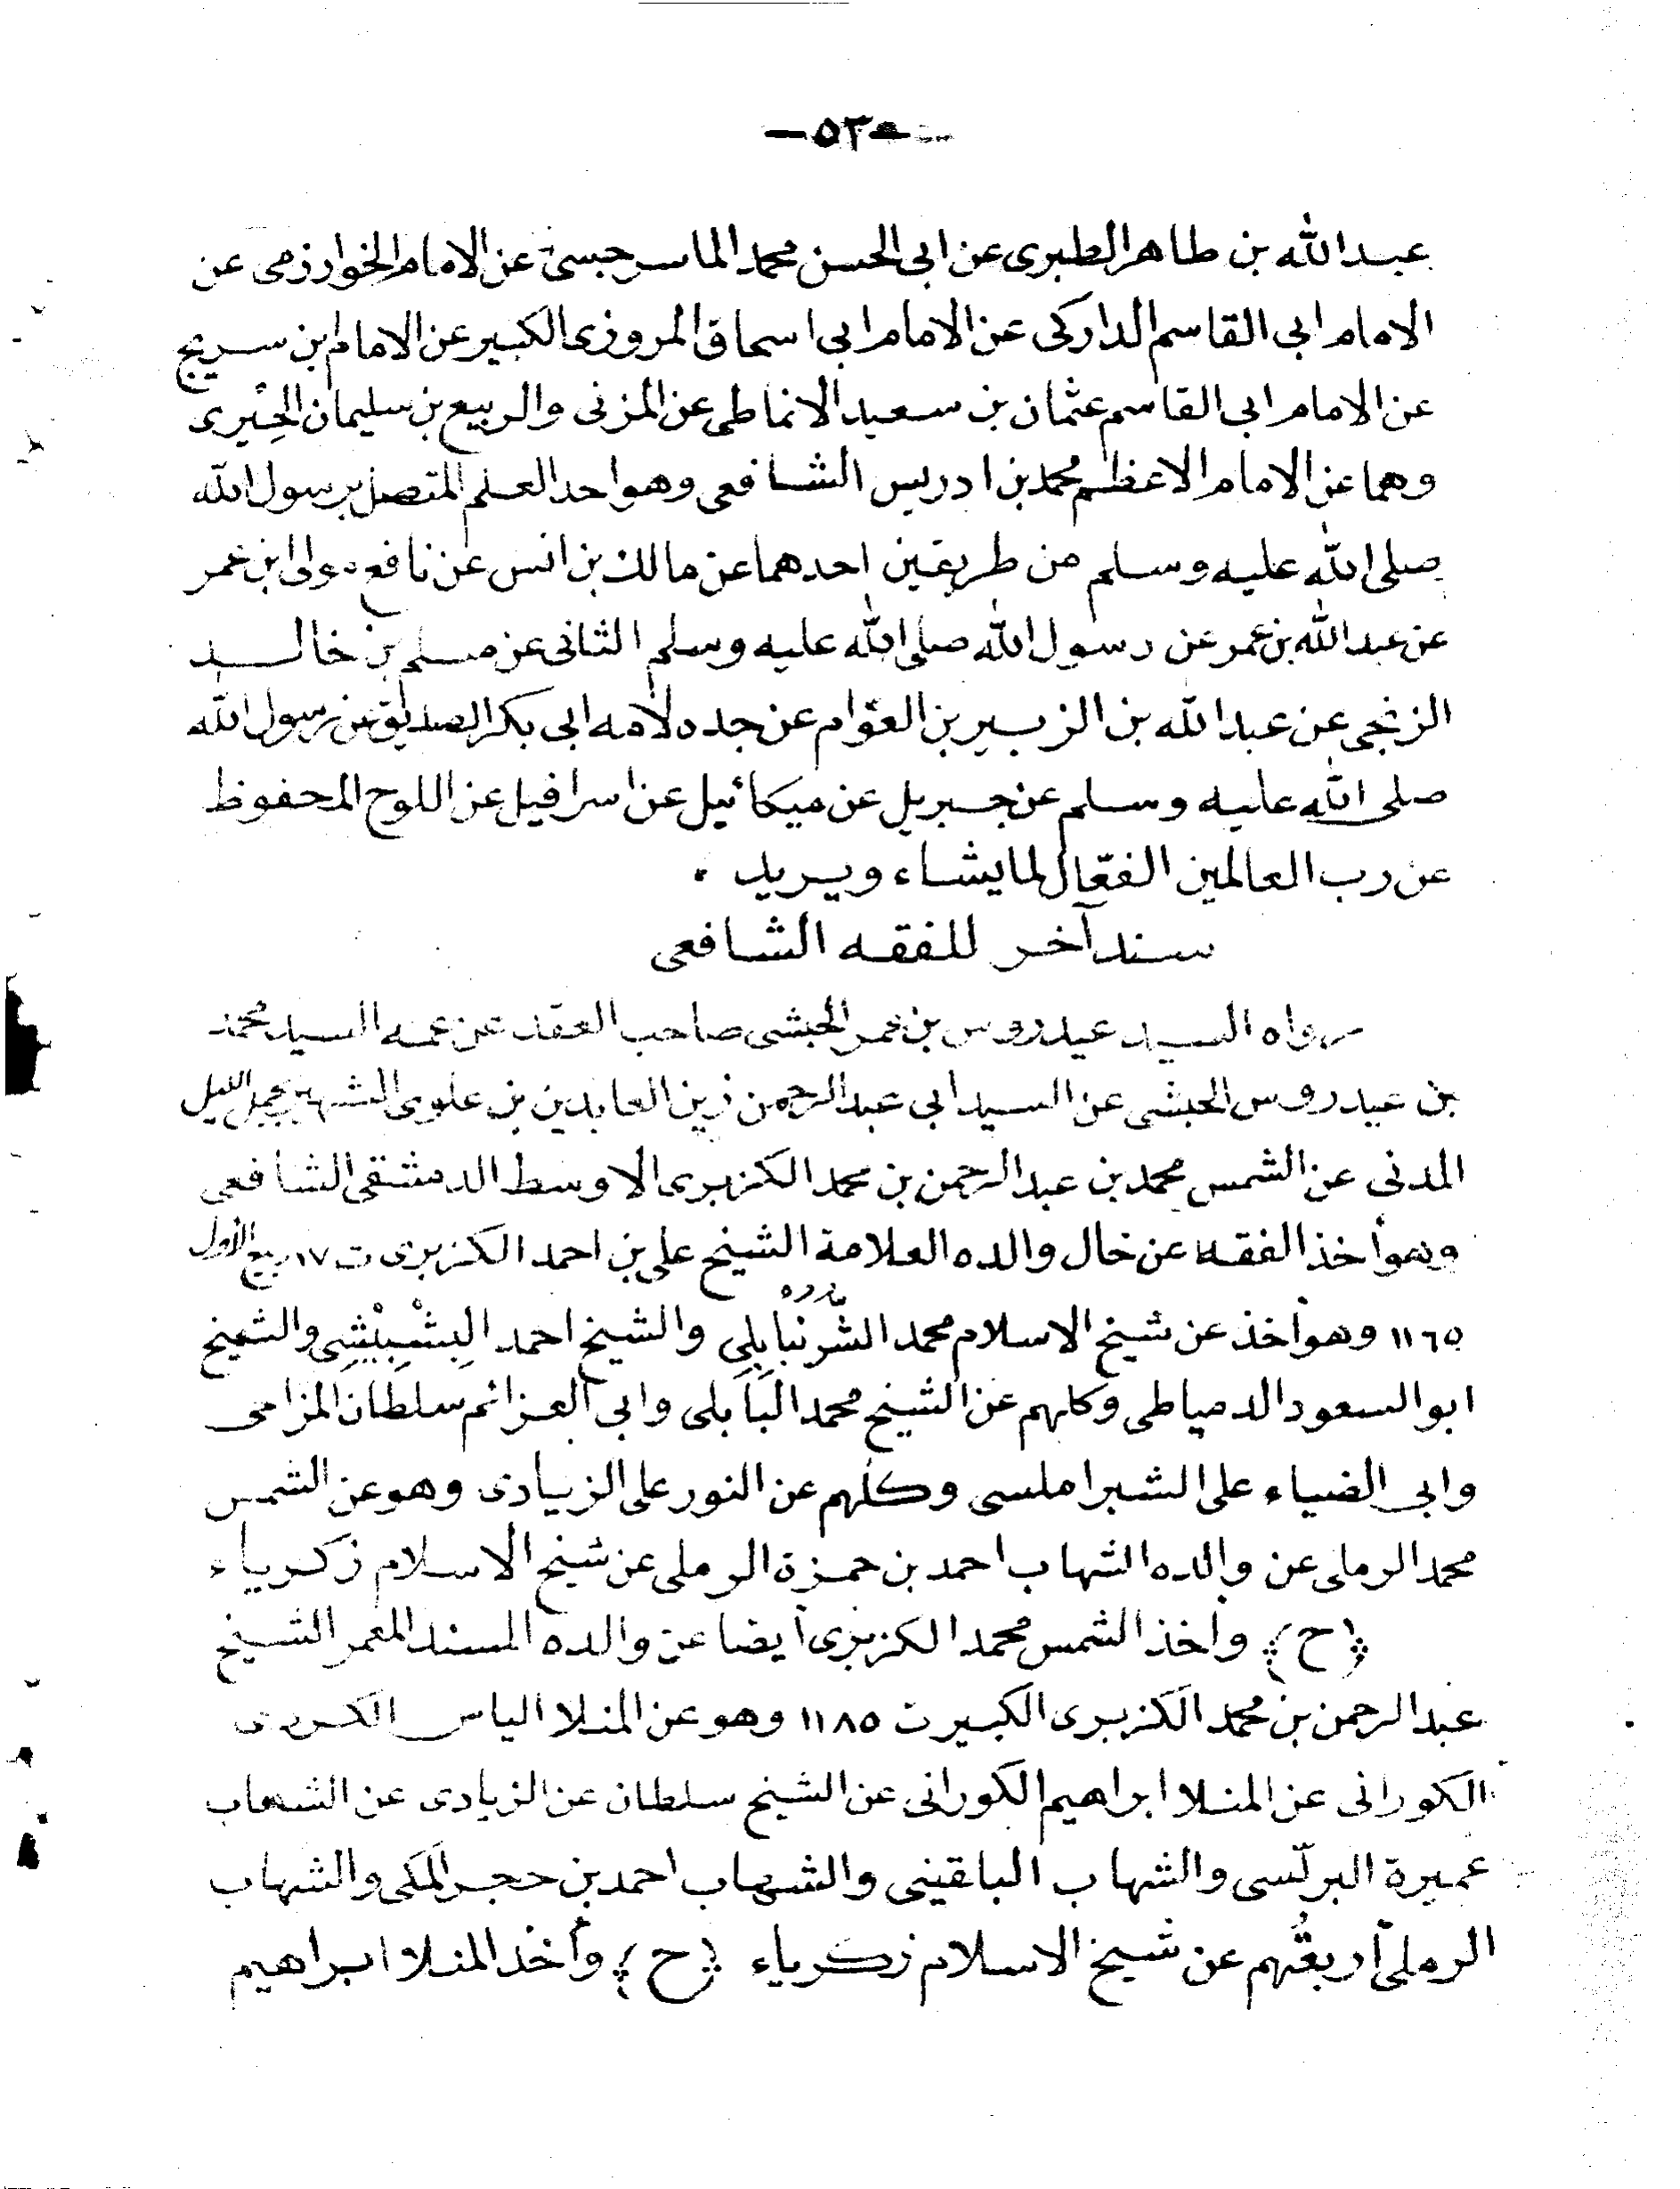 —٥٣—
عبد الله بن طاهر الطبرى عن ابى الحسن محمد الماسرجسى عن الامام الخوارزمى عن
الامام ابى القاسم الداركى عن الامام ابى اسحاق المروزى الكبير عن الامام ابن سريج
عن الامام ابى القاسم عثمان بن سعيد الانماطى عن المزنى والربيع بن سليمان الجيزى
وهما عن الامام الاعظم محمد بن ادريس الشافعى وهو احد العلم المتصل برسول الله
صلى الله عليه وسلم من طريقين احدهما عن مالك بن انس عن نافع مولى ابن عمر
عن عبد الله بن عمر عن رسول الله صلى الله عليه وسلم الثانى عن مسلم بن خالد
الزنجى عن عبد الله بن الزبير بن العوّام عن جده لامه ابى بكر الصديق عن رسول الله
صلى الله عليه وسلم عن جبريل عن ميكائيل عن اسرافيل عن اللوح المحفوظ
عن رب العالمين الفعّال لما يشاء ويريد .
سند آخر للفقه الشافعى
رواه السيد عيدروس بن عمر الحبشى صاحب العقد عن عمه السيد محمد
بن عيدروس الحبشى عن السيد ابى عبد الرحمن زين العابدين بن علوى الشهير بجمل الليل
المدنى عن الشمس محمد بن عبد الرحمن بن محمد الكزبرى الاوسط الدمشقى الشافعى
وهو أخذ الفقه عن خال والده العلامة الشيخ على بن احمد الكزبرى ت ١٧ ربيع الأول
١١٦٥ وهو أخذ عن شيخ الاسلام محمد الشّرنبابلِي والشيخ احمد البِشْبِيْشِى والشيخ
ابو السعود الدمياطى وكلهم عن الشيخ محمد البَابلى وابى العزائم سلطان المزاحى
وابى الضياء على الشبراملسى وكلهم عن النور على الزيادى وهو عن الشمس
محمد الرملى عن والده الشهاب احمد بن حمزة الرملى عن شيخ الاسلام زكرياء
﴿ح﴾ وأخذ الشمس محمد الكزبرى أيضا عن والده المسند المعمر الشيخ
عبد الرحمن بن محمد الكزبرى الكبير ت ١١٨٥ وهو عن المنلا الياس الكردى
الكورانى عن المنلا ابراهيم الكورانى عن الشيخ سلطان عن الزيادى عن الشهاب
عميرة البرلّسى والشهاب الباقينى والشهاب احمد بن حجر المكى والشهاب
الرملى أربعتُهم عن شيخ الاسلام زكرياء ﴿ح﴾ وأخذ المنلا ابراهيم